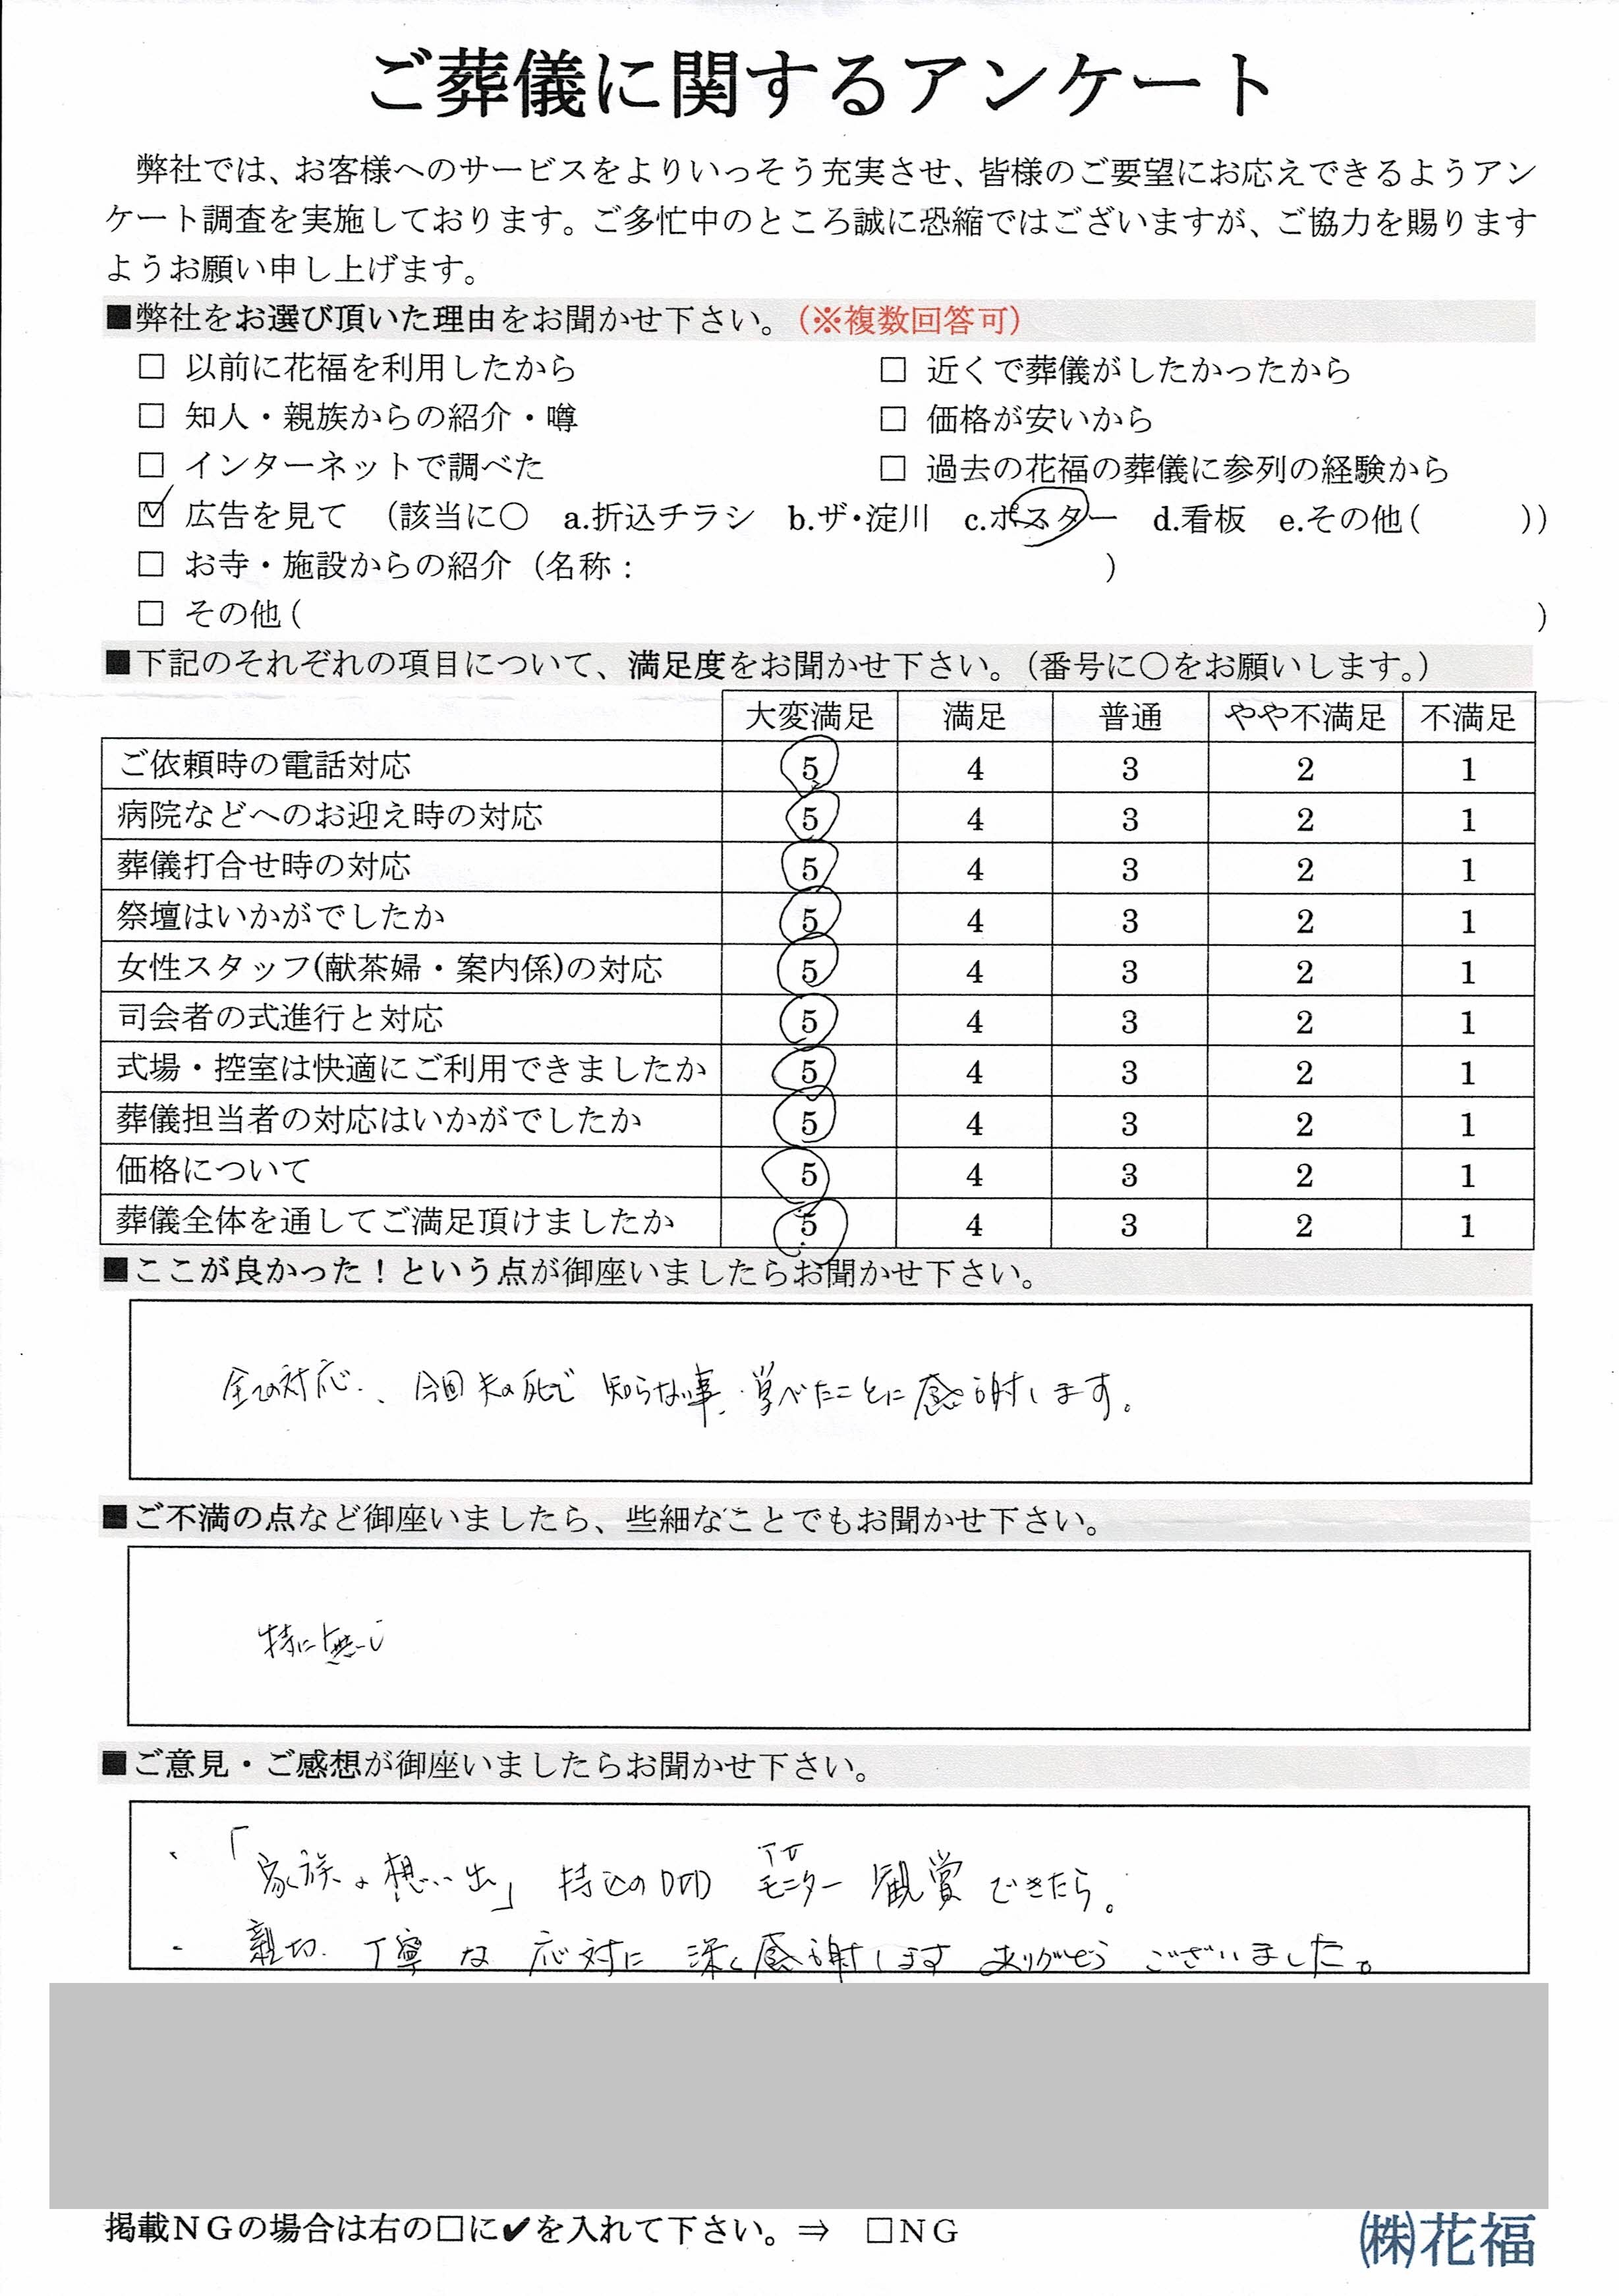 ご葬儀に関するアンケート
弊社では、お客様へのサービスをよりいっそう充実させ、皆様のご要望にお応えできるようアン
ケート調査を実施しております。ご多忙中のところ誠に恐縮ではございますが、ご協力を賜ります
ようお願い申し上げます。
■弊社をお選び頂いた理由をお聞かせ下さい。（※複数回答可）
□ 以前に花福を利用したから □ 近くで葬儀がしたかったから
□ 知人・親族からの紹介・噂 □ 価格が安いから
□ インターネットで調べた □ 過去の花福の葬儀に参列の経験から
☑ 広告を見て （該当に○ a.折込チラシ b.ザ・淀川 c.ポスター d.看板 e.その他( )）
□ お寺・施設からの紹介（名称： ）
□ その他( )
■下記のそれぞれの項目について、満足度をお聞かせ下さい。（番号に○をお願いします。）
大変満足 満足 普通 やや不満足 不満足
ご依頼時の電話対応 5 4 3 2 1
病院などへのお迎え時の対応 5 4 3 2 1
葬儀打合せ時の対応 5 4 3 2 1
祭壇はいかがでしたか 5 4 3 2 1
女性スタッフ(献茶婦・案内係)の対応 5 4 3 2 1
司会者の式進行と対応 5 4 3 2 1
式場・控室は快適にご利用できましたか 5 4 3 2 1
葬儀担当者の対応はいかがでしたか 5 4 3 2 1
価格について 5 4 3 2 1
葬儀全体を通してご満足頂けましたか 5 4 3 2 1
■ここが良かった！という点が御座いましたらお聞かせ下さい。
全ての対応、今回夫の死で 知らない事、学べたことに感謝します。
■ご不満の点など御座いましたら、些細なことでもお聞かせ下さい。
特に無し
■ご意見・ご感想が御座いましたらお聞かせ下さい。
・「家族の想い出」 持込のDVD TV モニター 観賞 できたら。
・ 親切、丁寧な 応対に 深く感謝します ありがとう ございました。
掲載NGの場合は右の□に✔を入れて下さい。⇒ □NG
㈱花福